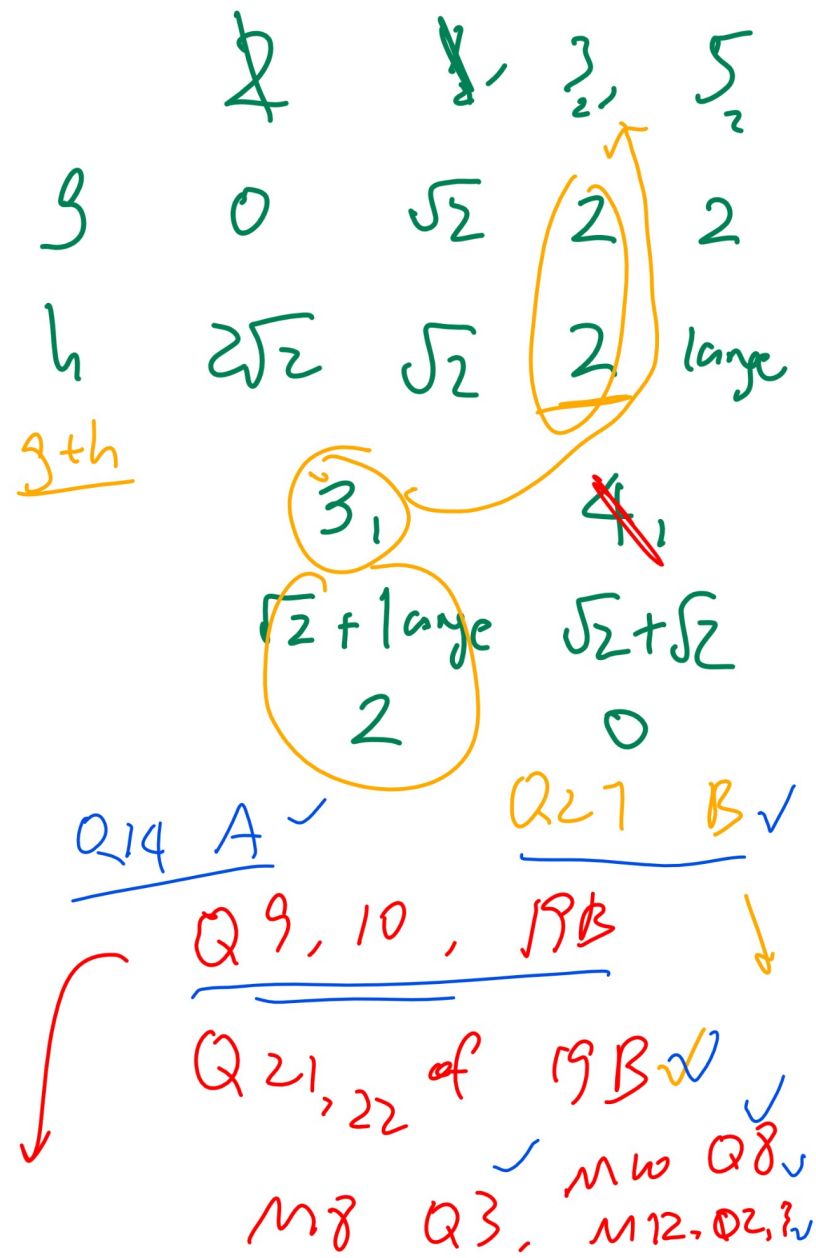 3₂, 5₂
g 0 √2 2 2
h 2√2 √2 2 large
g+h
3₁ 4₁
√2 + large √2+√2
2 0
Q14 A ✓ Q27 B ✓
Q 9, 10, 19B
Q 21, 22 of 19B ✓
M10 Q8 ✓
M8 Q3, M12, Q2, 3 ✓